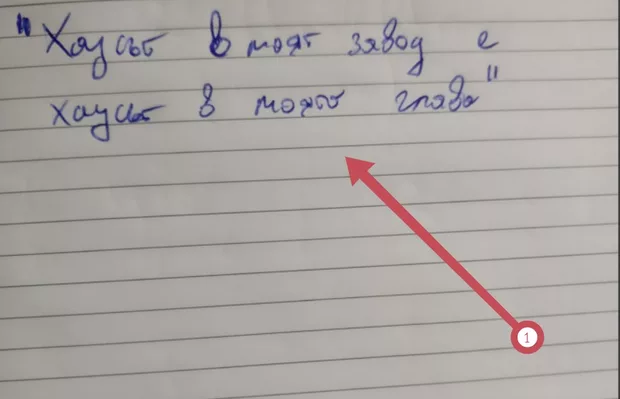 "Хаусът в моят завод е
хаусът в моята глава"
1